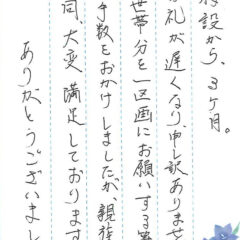 設から、3ヶ月。
お礼が遅くなり、申し訳ありませ
世帯分を一区画にお願いする
手数をおかけしましたが、親族
同、大変満足しております
ありがとうございまし